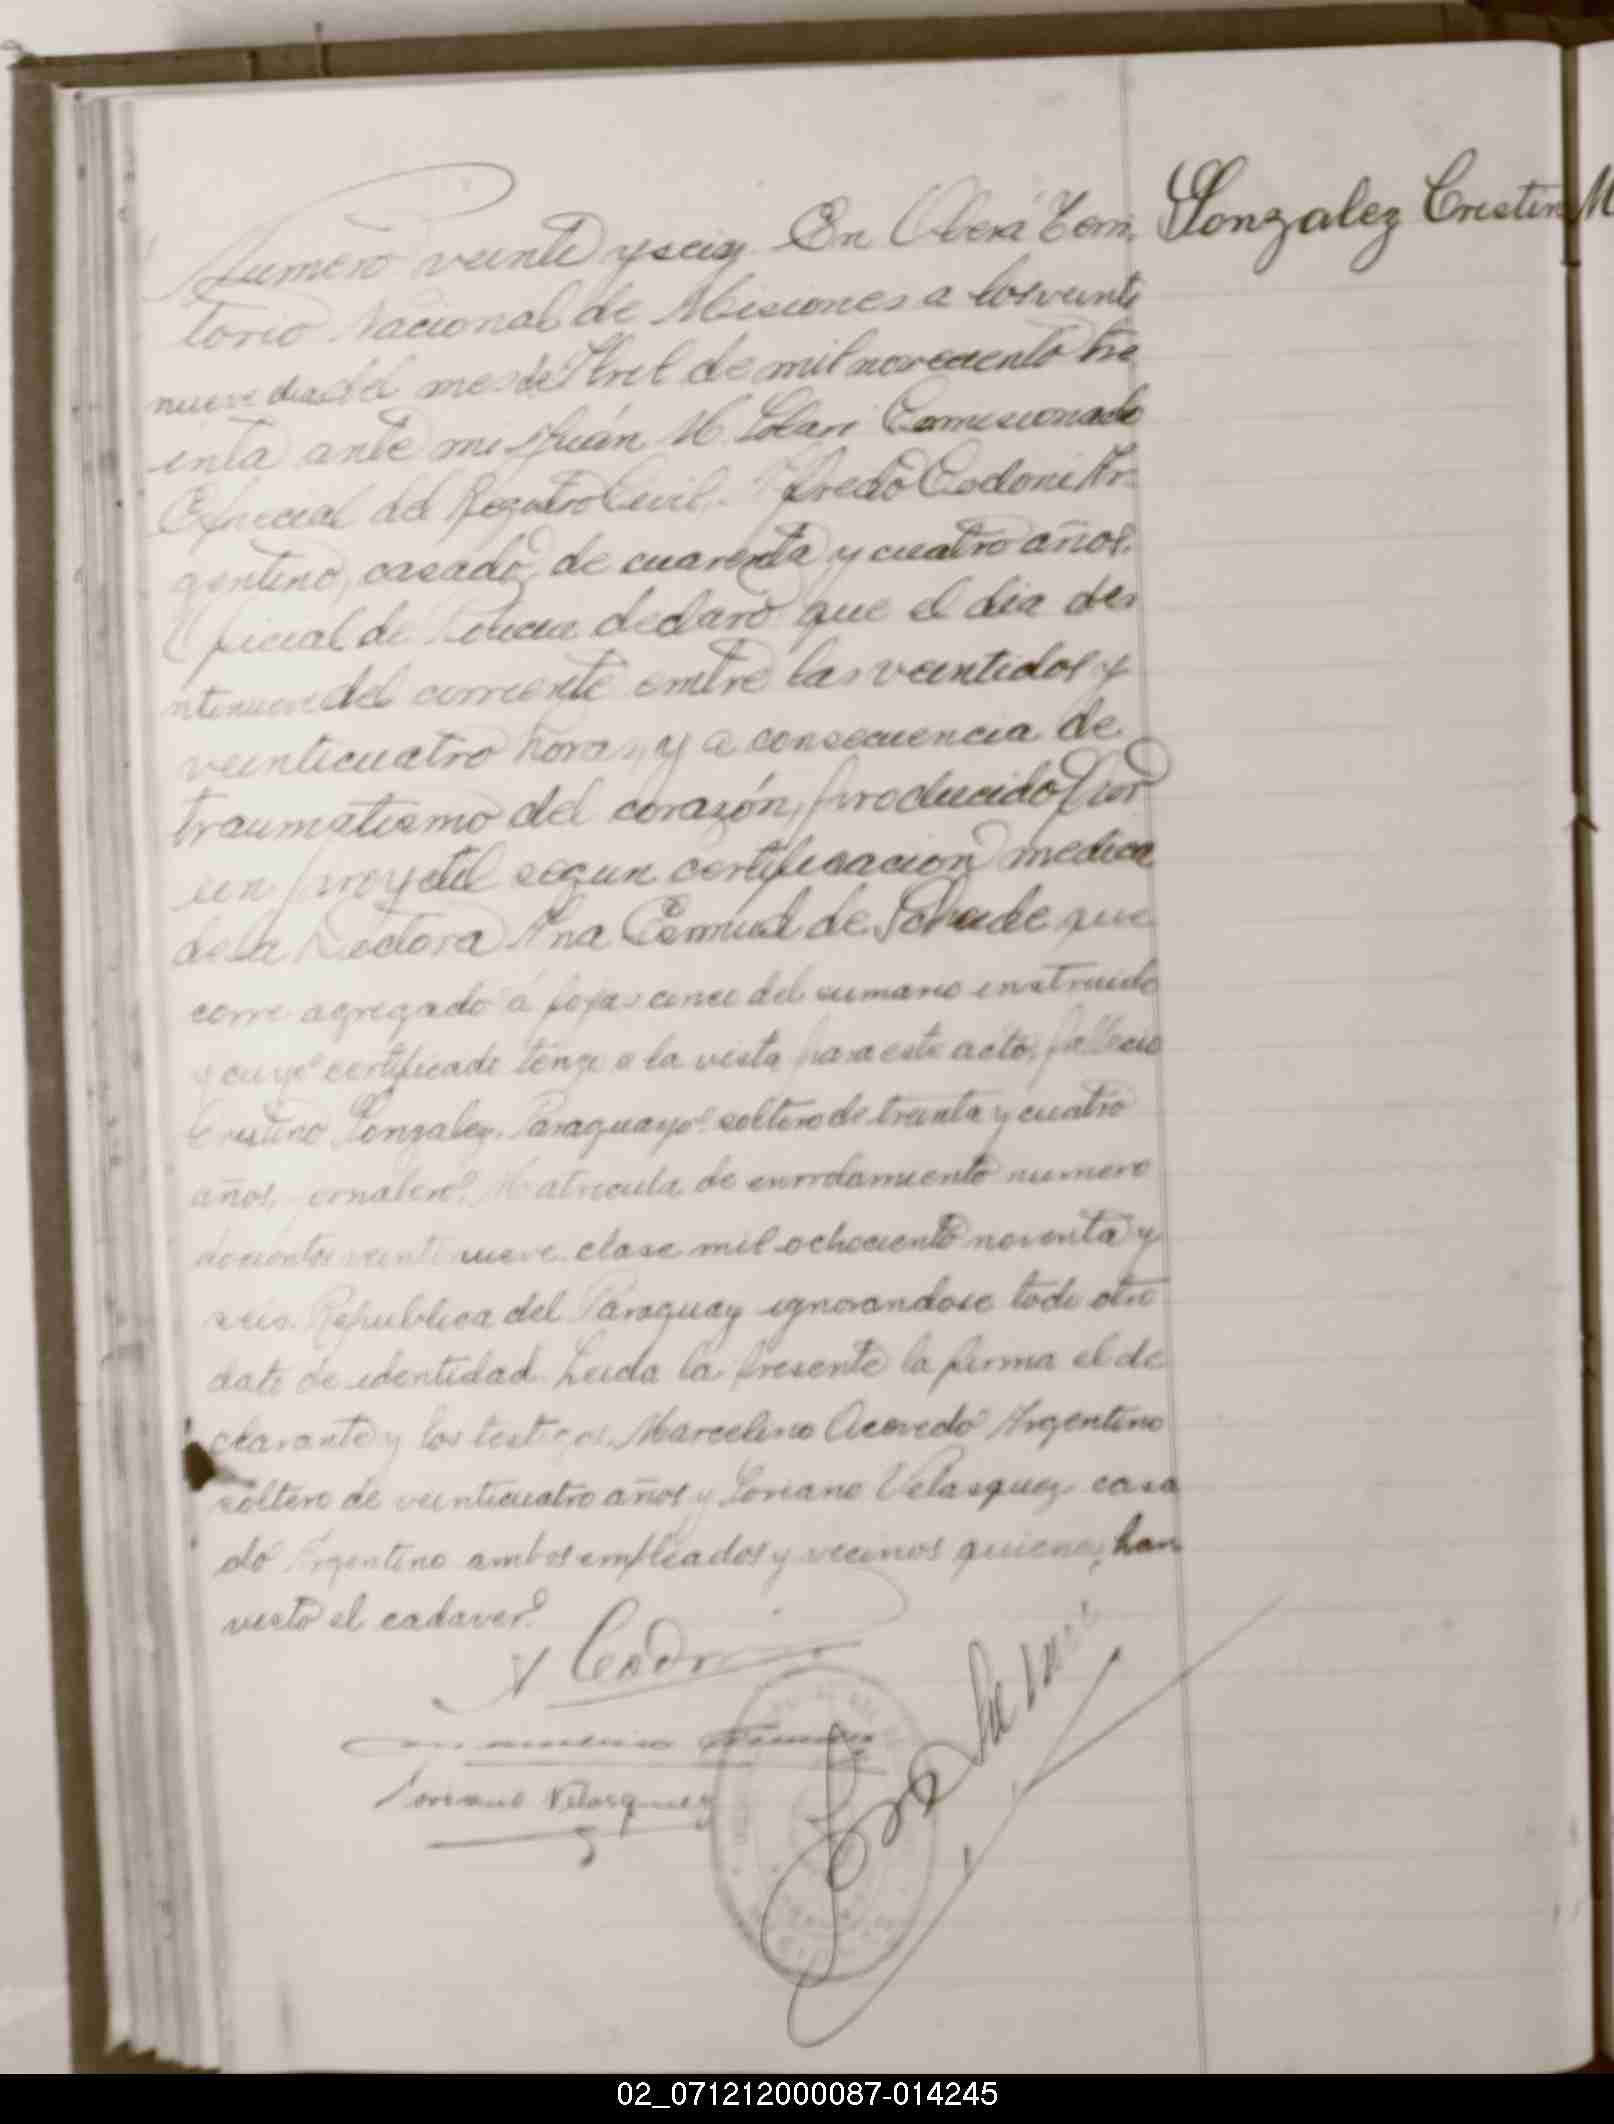 Gonzalez Cristin M
Numero veinte y seis En Oberá Terri
torio Nacional de Misiones a los veinti
nueve dias del mes de Abril de mil noveciento tre
inta ante mi Juán M. Solari Comisionado
Especial del Registro Civil. Alfredo Codoni Ar-
gentino, casado, de cuarenta y cuatro años.
Oficial de Policia declaró que el dia
del corriente entre las veintidos y
veinticuatro horas, y a consecuencia de
traumatismo del corazón, producido por
un proyctil segun certificacion medica
de la Doctora Ana de que
corre agregado á fojas cinco del sumario instruido
y cuyo certificado tengo a la vista para este acto, fallecio
Cristino Gonzalez, Paraguayo soltero de treinta y cuatro
años, jornalero, Matricula de enrrolamiento numero
docientos veintinueve clase mil ochociento noventa y
seis. Republica del Paraguay ignorandose todo otro
dato de identidad. Leida la presente la firma el de
clarante y los testigos, Marcelino Acevedo Argentino
soltero de veinticuatro años y Soriano Velasquez casa
do Argentino ambos empleados y vecinos quienes han
visto el cadaver.
Soriano Velasquez
02_071212000087-014245